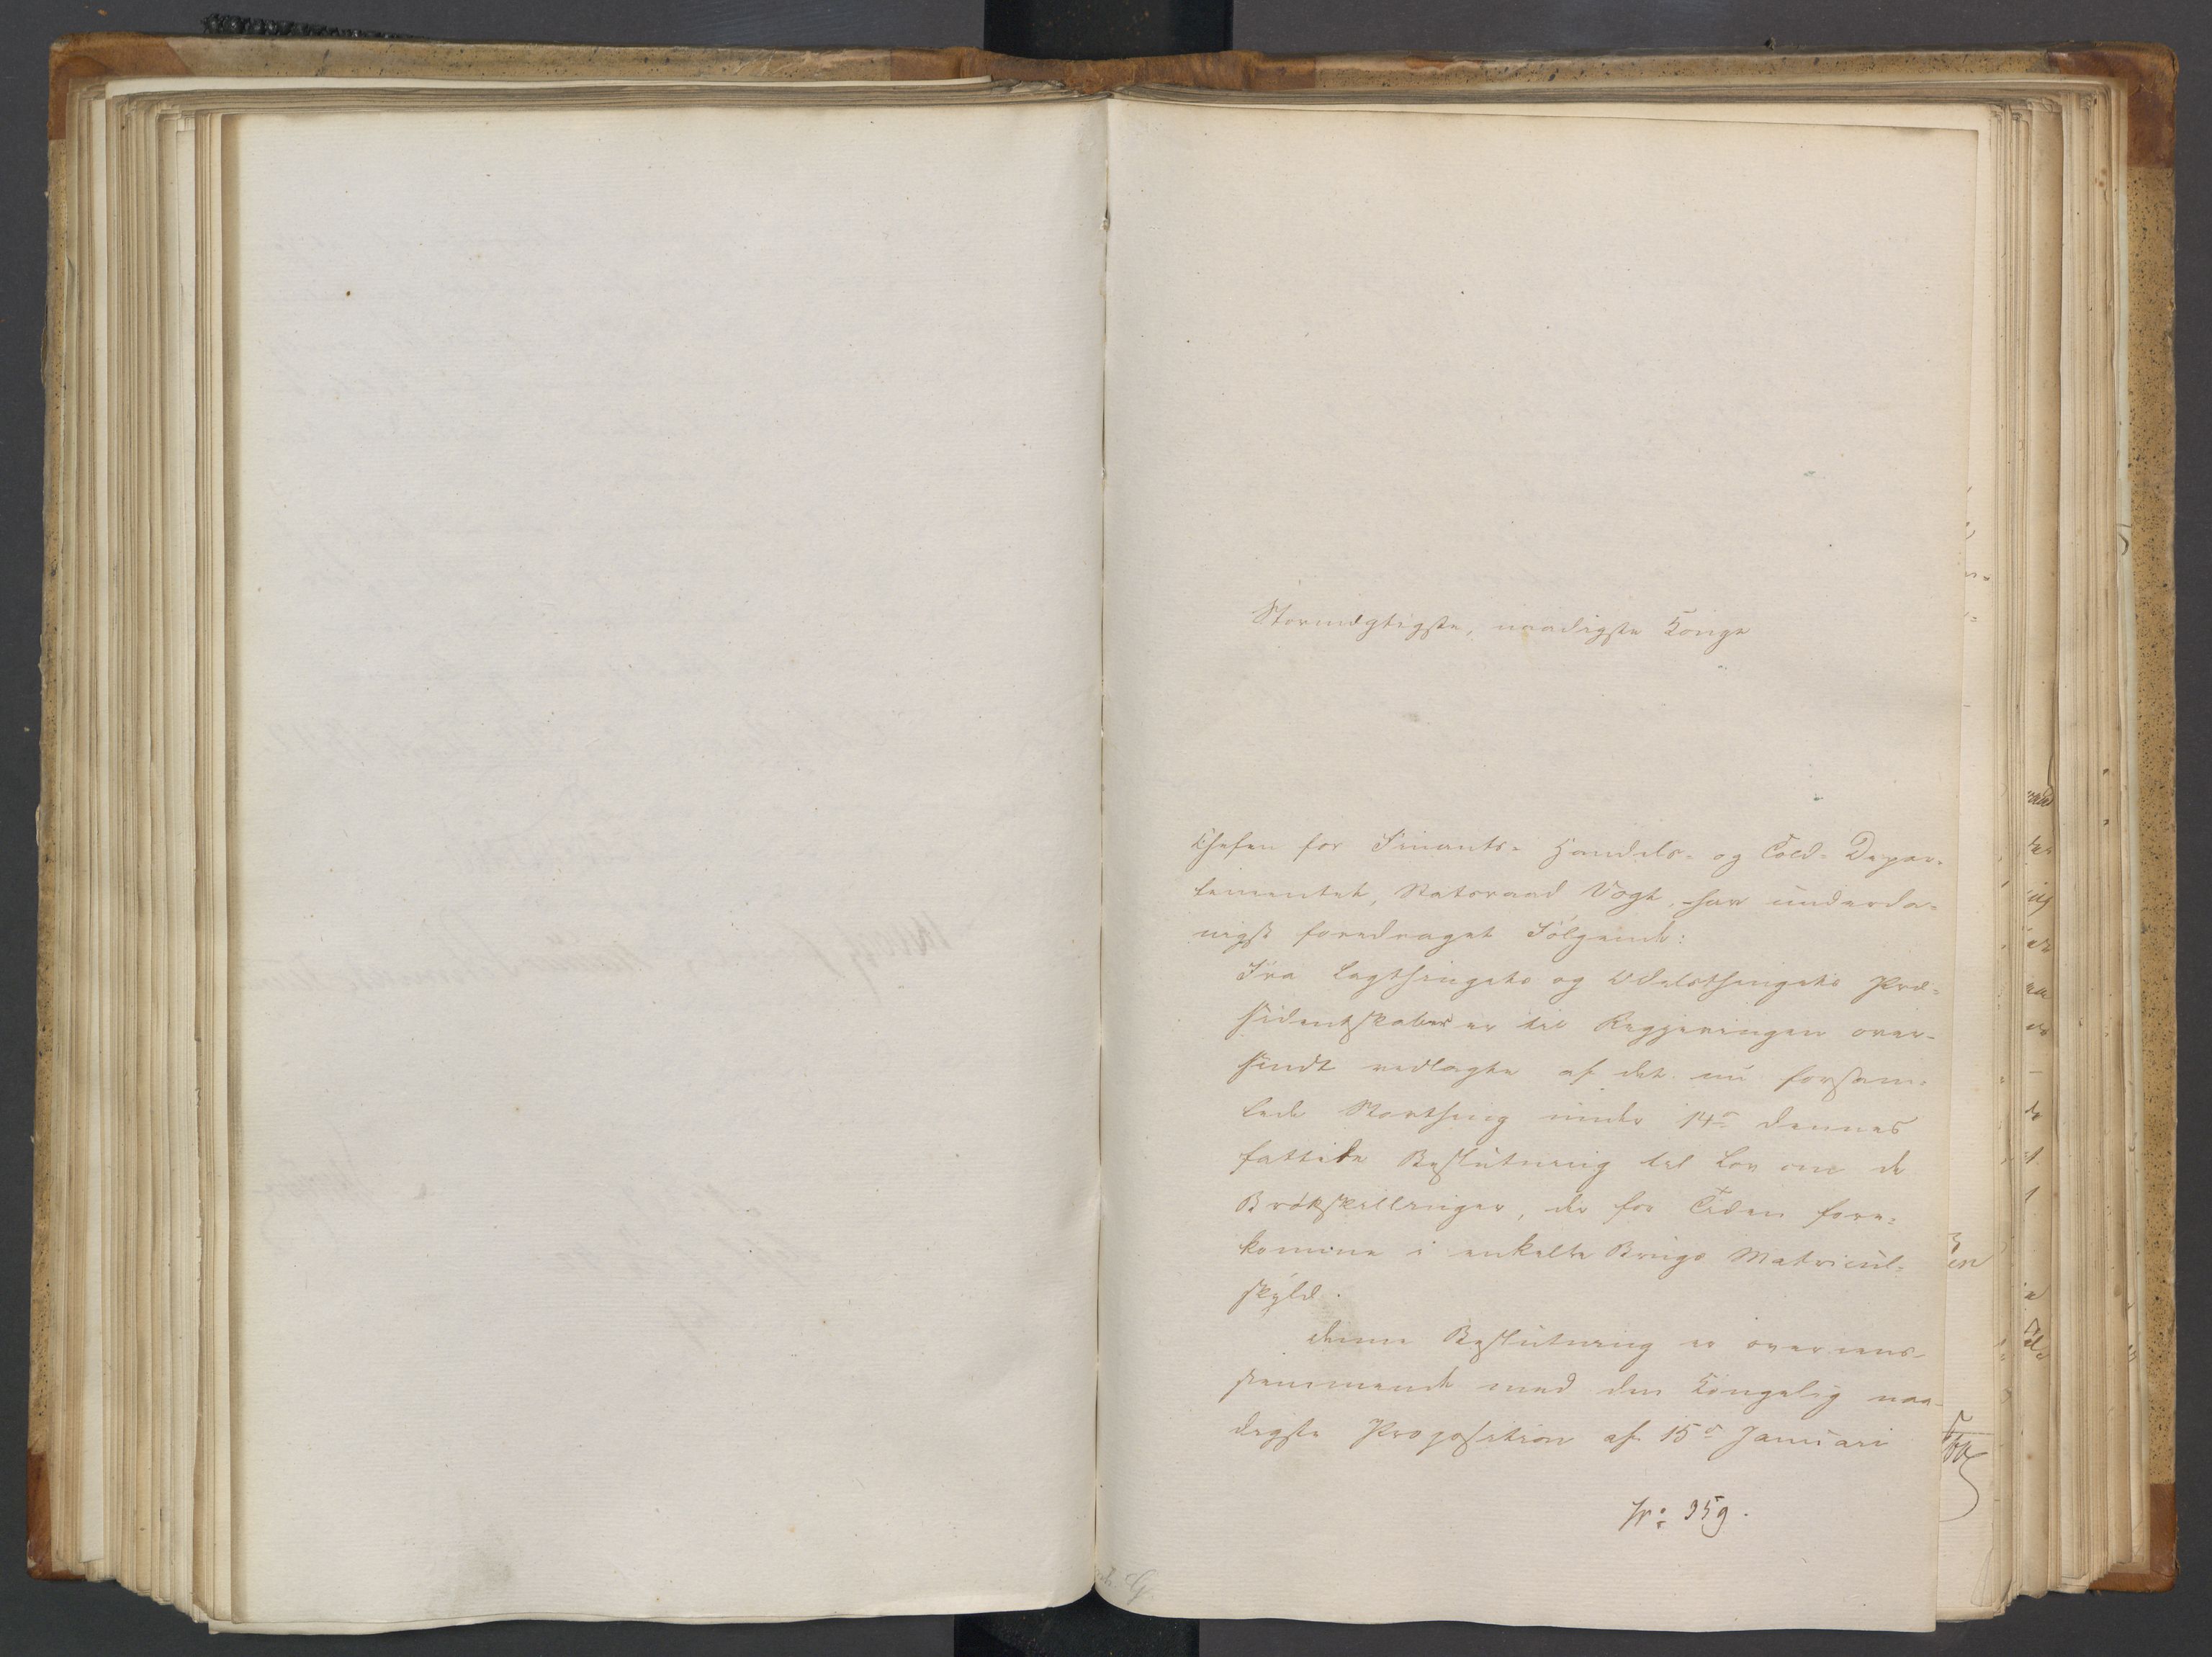 Stormægtigste, naadigste Konge
Chefen for Finants- Handels- og Told-Depar-
tementet, Statsraad Vogt, har underda-
nigst foredraget Følgende:
Fra Lagthingets og Odelsthingets Præ-
sidentskaber er til Regjeringen over-
sendt vedlagte af det nu forsam-
lede Storthing under 14de dennes
fattede Beslutning til Lov om de
Brøkskillinger, der for Tiden fore-
komme i enkelte Brugs Matricul-
skyld.
Denne Beslutning er overeens-
stemmende med den Kongelig naa-
digste Proposition af 15de Januari
No: 359.